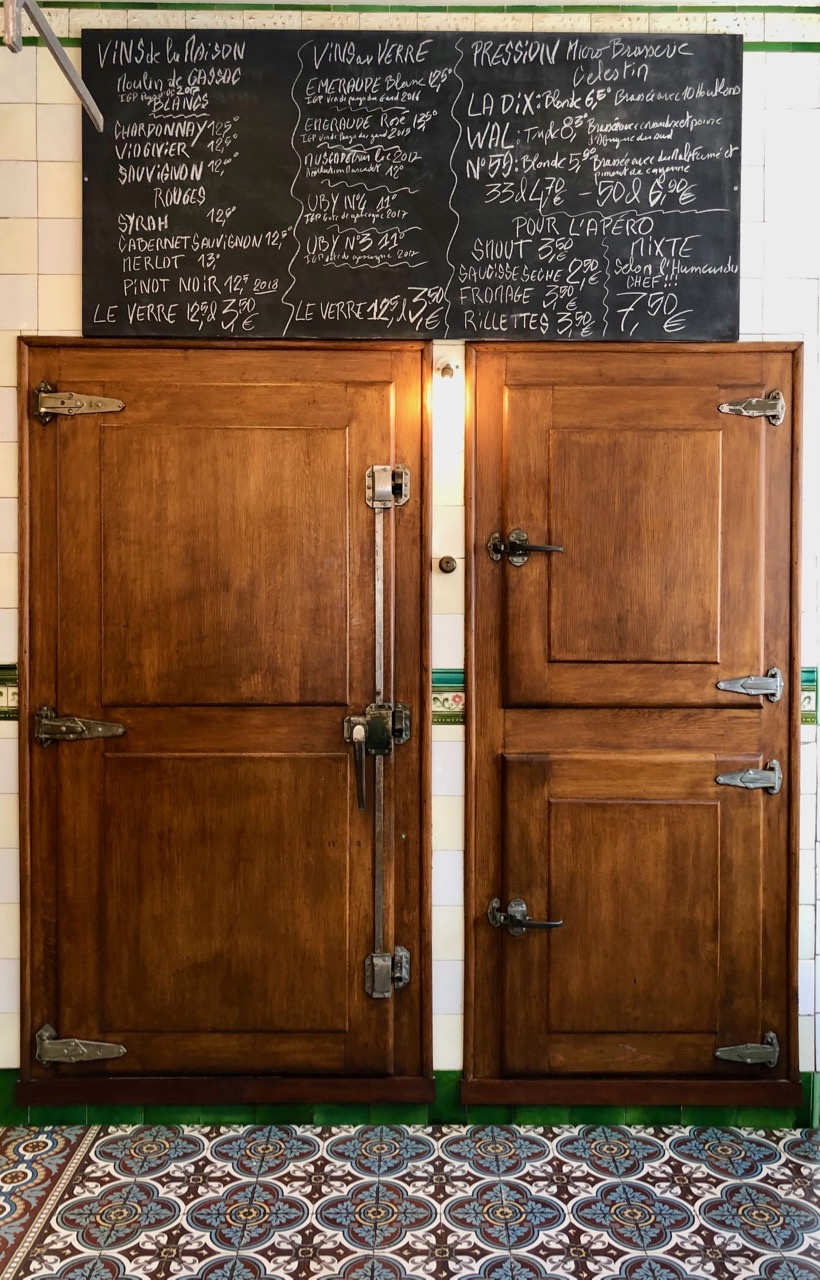 VINS de la MAISON
Moulin de GASSAC
IGP 2017
BLANCS
CHARDONNAY 12,5°
VIOGNIER 12,5°
SAUVIGNON 12,0°
ROUGES
SYRAH 12,5°
CABERNET SAUVIGNON 12,5°
MERLOT 13°
PINOT NOIR 12,5 2018
LE VERRE 12,5cl 3,50€
VINS au VERRE
EMERAUDE Blanc 12,5°
IGP vin de pays du Gard 2016
EMERAUDE Rosé
IGP vin de Pays du gard 2015
2012
12°
UBY N°4 11°
IGP Cote de gascogne 2017
UBY N°3 11°
IGP Cote de gascogne 2017
LE VERRE 12,5cl 3,50€
PRESSION Micro Brasserie
Celestin
LA DIX: Blonde 6,5° Brassée avec 10 Houblons
WAL: Triple 8,3° Brassée avec
N°59: Blonde 5,9° Brassée avec du Malt Fumé et
piment de cayenne
33cl 4,70€ - 50cl 6,90€
POUR L'APÉRO
SMOUT 3,50€
SAUCISSE SECHE 2,50€
FROMAGE 3,50€
RILLETTES 3,50€
MIXTE
Selon l'Humeur du
CHEF!!!
7,50€